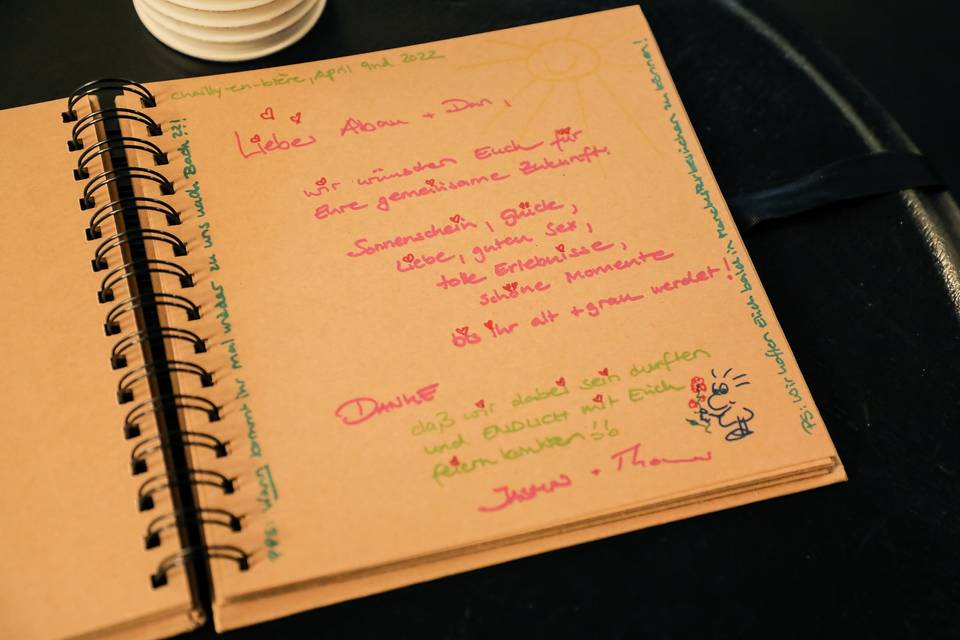 Chailly-en-bière, April 9nd 2022
Lieber Alban + Dan,
wir wünschen Euch für
Eure gemeinsame Zukunft,
Sonnenschein, Glück,
Liebe, guten Sex,
tolle Erlebnisse,
schöne Momente
bis ihr alt + grau werdet!
DANKE
daß wir dabei sein durften
und ENDLICH mit Euch
feiern konnten!!
+ Thomas
PS: wir hoffen Euch bald in zu können!
PPS: wann kommt ihr mal wieder zu uns nach Bach 22?!